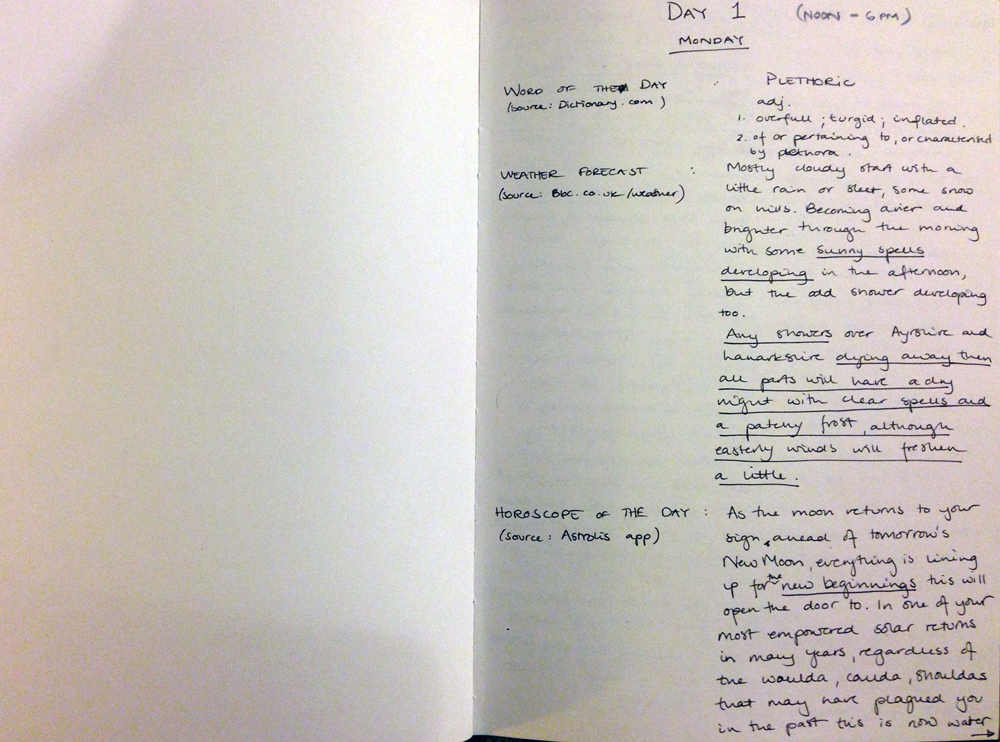 DAY 1 (NOON - 6PM)
MONDAY
WORD OF THE DAY : PLETHORIC
(source: Dictionary.com)
adj.
1. overfull; turgid; inflated.
2. of or pertaining to, or characterised
by plethora.
WEATHER FORECAST :
(source: Bbc.co.uk/weather)
Mostly cloudy start with a
little rain or sleet, some snow
on hills. Becoming drier and
brighter through the morning
with some sunny spells
developing in the afternoon,
but the odd shower developing
too.
Any showers over Ayrshire and
Lanarkshire dying away then
all parts will have a dry
night with clear spells and
a patchy frost, although
easterly winds will freshen
a little.
HOROSCOPE OF THE DAY :
(source: Astrolis app)
As the moon returns to your
sign, ahead of tomorrow's
New Moon, everything is lining
up for the new beginnings this will
open the door to. In one of your
most empowered solar returns
in many years, regardless of
the woulda, coulda, shouldas
that may have plagued you
in the past this is now water →